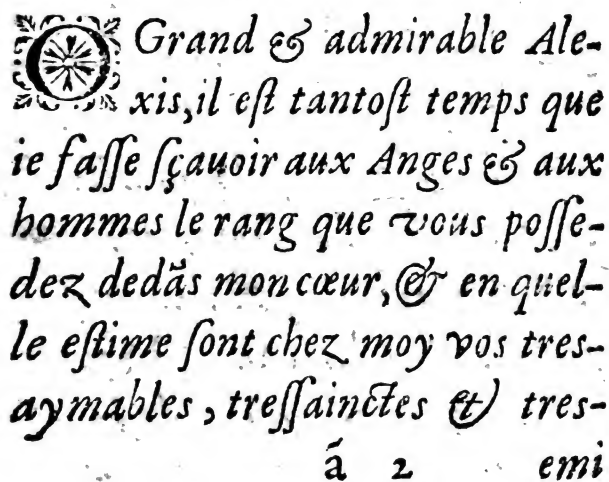 O Grand & admirable Ale-
xis, il eſt tantoſt temps que
ie faſſe ſçauoir aux Anges & aux
hommes le rang que vous poſſe-
dez dedãs mon cœur, & en quel-
le eſtime ſont chez moy vos tres-
aymables, treſſainctes & tres-
ã 2 emi